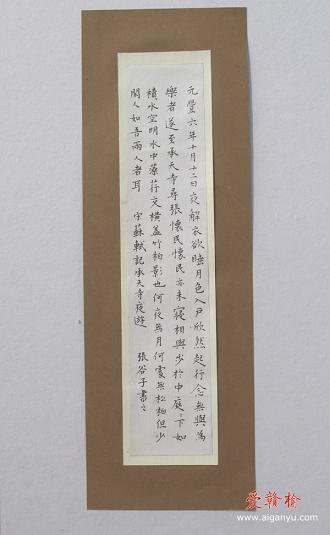 元豐六年十月十二日夜解衣欲睡月色入戶欣然起行念無與為
樂者遂至承天寺尋張懷民懷民亦未寢相與步於中庭〻下如
積水空明水中藻荇交橫蓋竹柏影也何夜無月何處無松柏但少
閑人如吾兩人者耳 宋蘇軾記承天寺夜遊 張谷子書之
爱赣榆
www.aiganyu.com